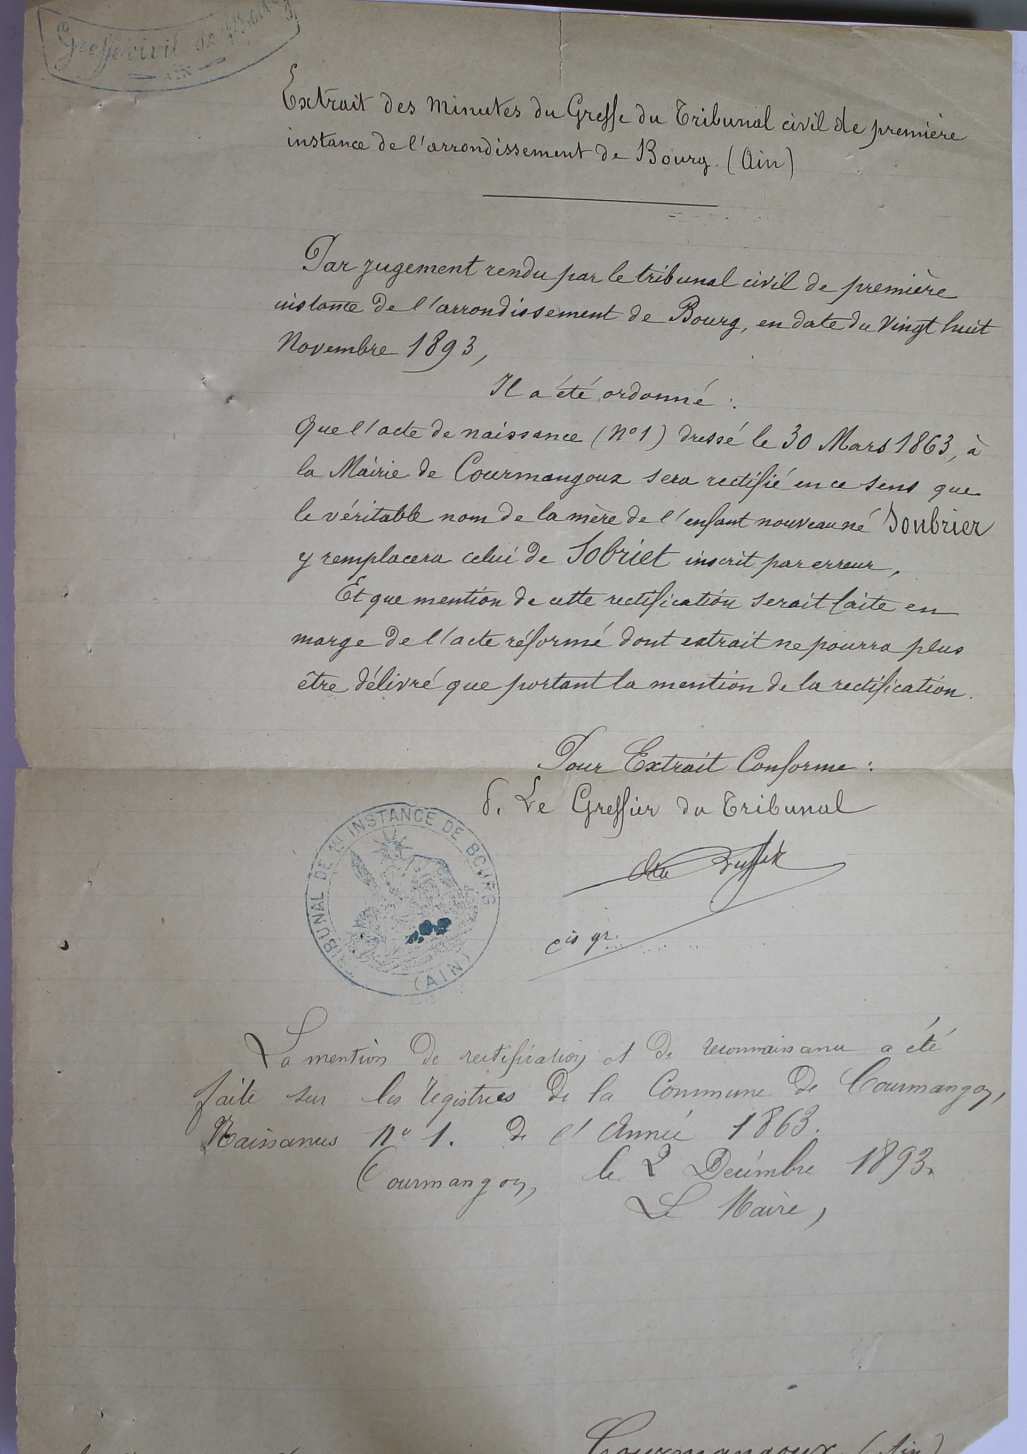 Greffe civil de Bourg
AIN
Extrait des minutes du Greffe du Tribunal civil de première
instance de l'arrondissement de Bourg. (Ain)
Par jugement rendu par le tribunal civil de première
instance de l'arrondissement de Bourg, en date du Vingt huit
Novembre 1893,
Il a été ordonné :
Que l'acte de naissance (N°1) dressé le 30 Mars 1863, à
la Mairie de Courmangoux sera rectifié en ce sens que
le véritable nom de la mère de l'enfant nouveau né Soubrier
y remplacera celui de Sobriet inscrit par erreur,
Et que mention de cette rectification serait faite en
marge de l'acte réformé dont extrait ne pourra plus
être délivré que portant la mention de la rectification.
Pour Extrait Conforme :
P. Le Greffier du Tribunal
cis gr.
TRIBUNAL DE 1re INSTANCE DE BOURG
(AIN)
La mention de rectification et de reconnaissance a été
faite sur les registres de la Commune de Courmangoux,
Naissances N° 1. de l'Année 1863.
Courmangoux, le 2 Décembre 1893.
Le Maire,
Courmangoux (Ain)